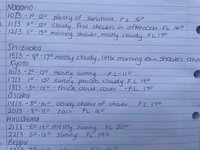 Nagano -
10/3 - 1° - 12° plenty of sunshine. FL 16°
11/3 5° - 11° cloudy, few showers in afternoon - FL 14°
12/3 5° - 15° morning shower, mostly cloudy FL 17°
Shizuoka
15/3 - 9° - 17° mostly cloudy, little morning rain
Kyoto
16/3 - 2° - 13° mostly sunny - FL - 17°
17/3 - 1° - 12° sunny, periods cloudy FL 15°
18/3 - 3° - 15° - thick cloud cover - FL 17°
Osaka
19/3 - 8° - 16° cloudy chance of shower FL 17°
20/3 - 8° - 15° rain FL 16°
Hiroshima
21/3 - 6° - 15° mostly sunny. FL 20°
22/3 6° - 15° mostly sunny FL 19°
Beppu